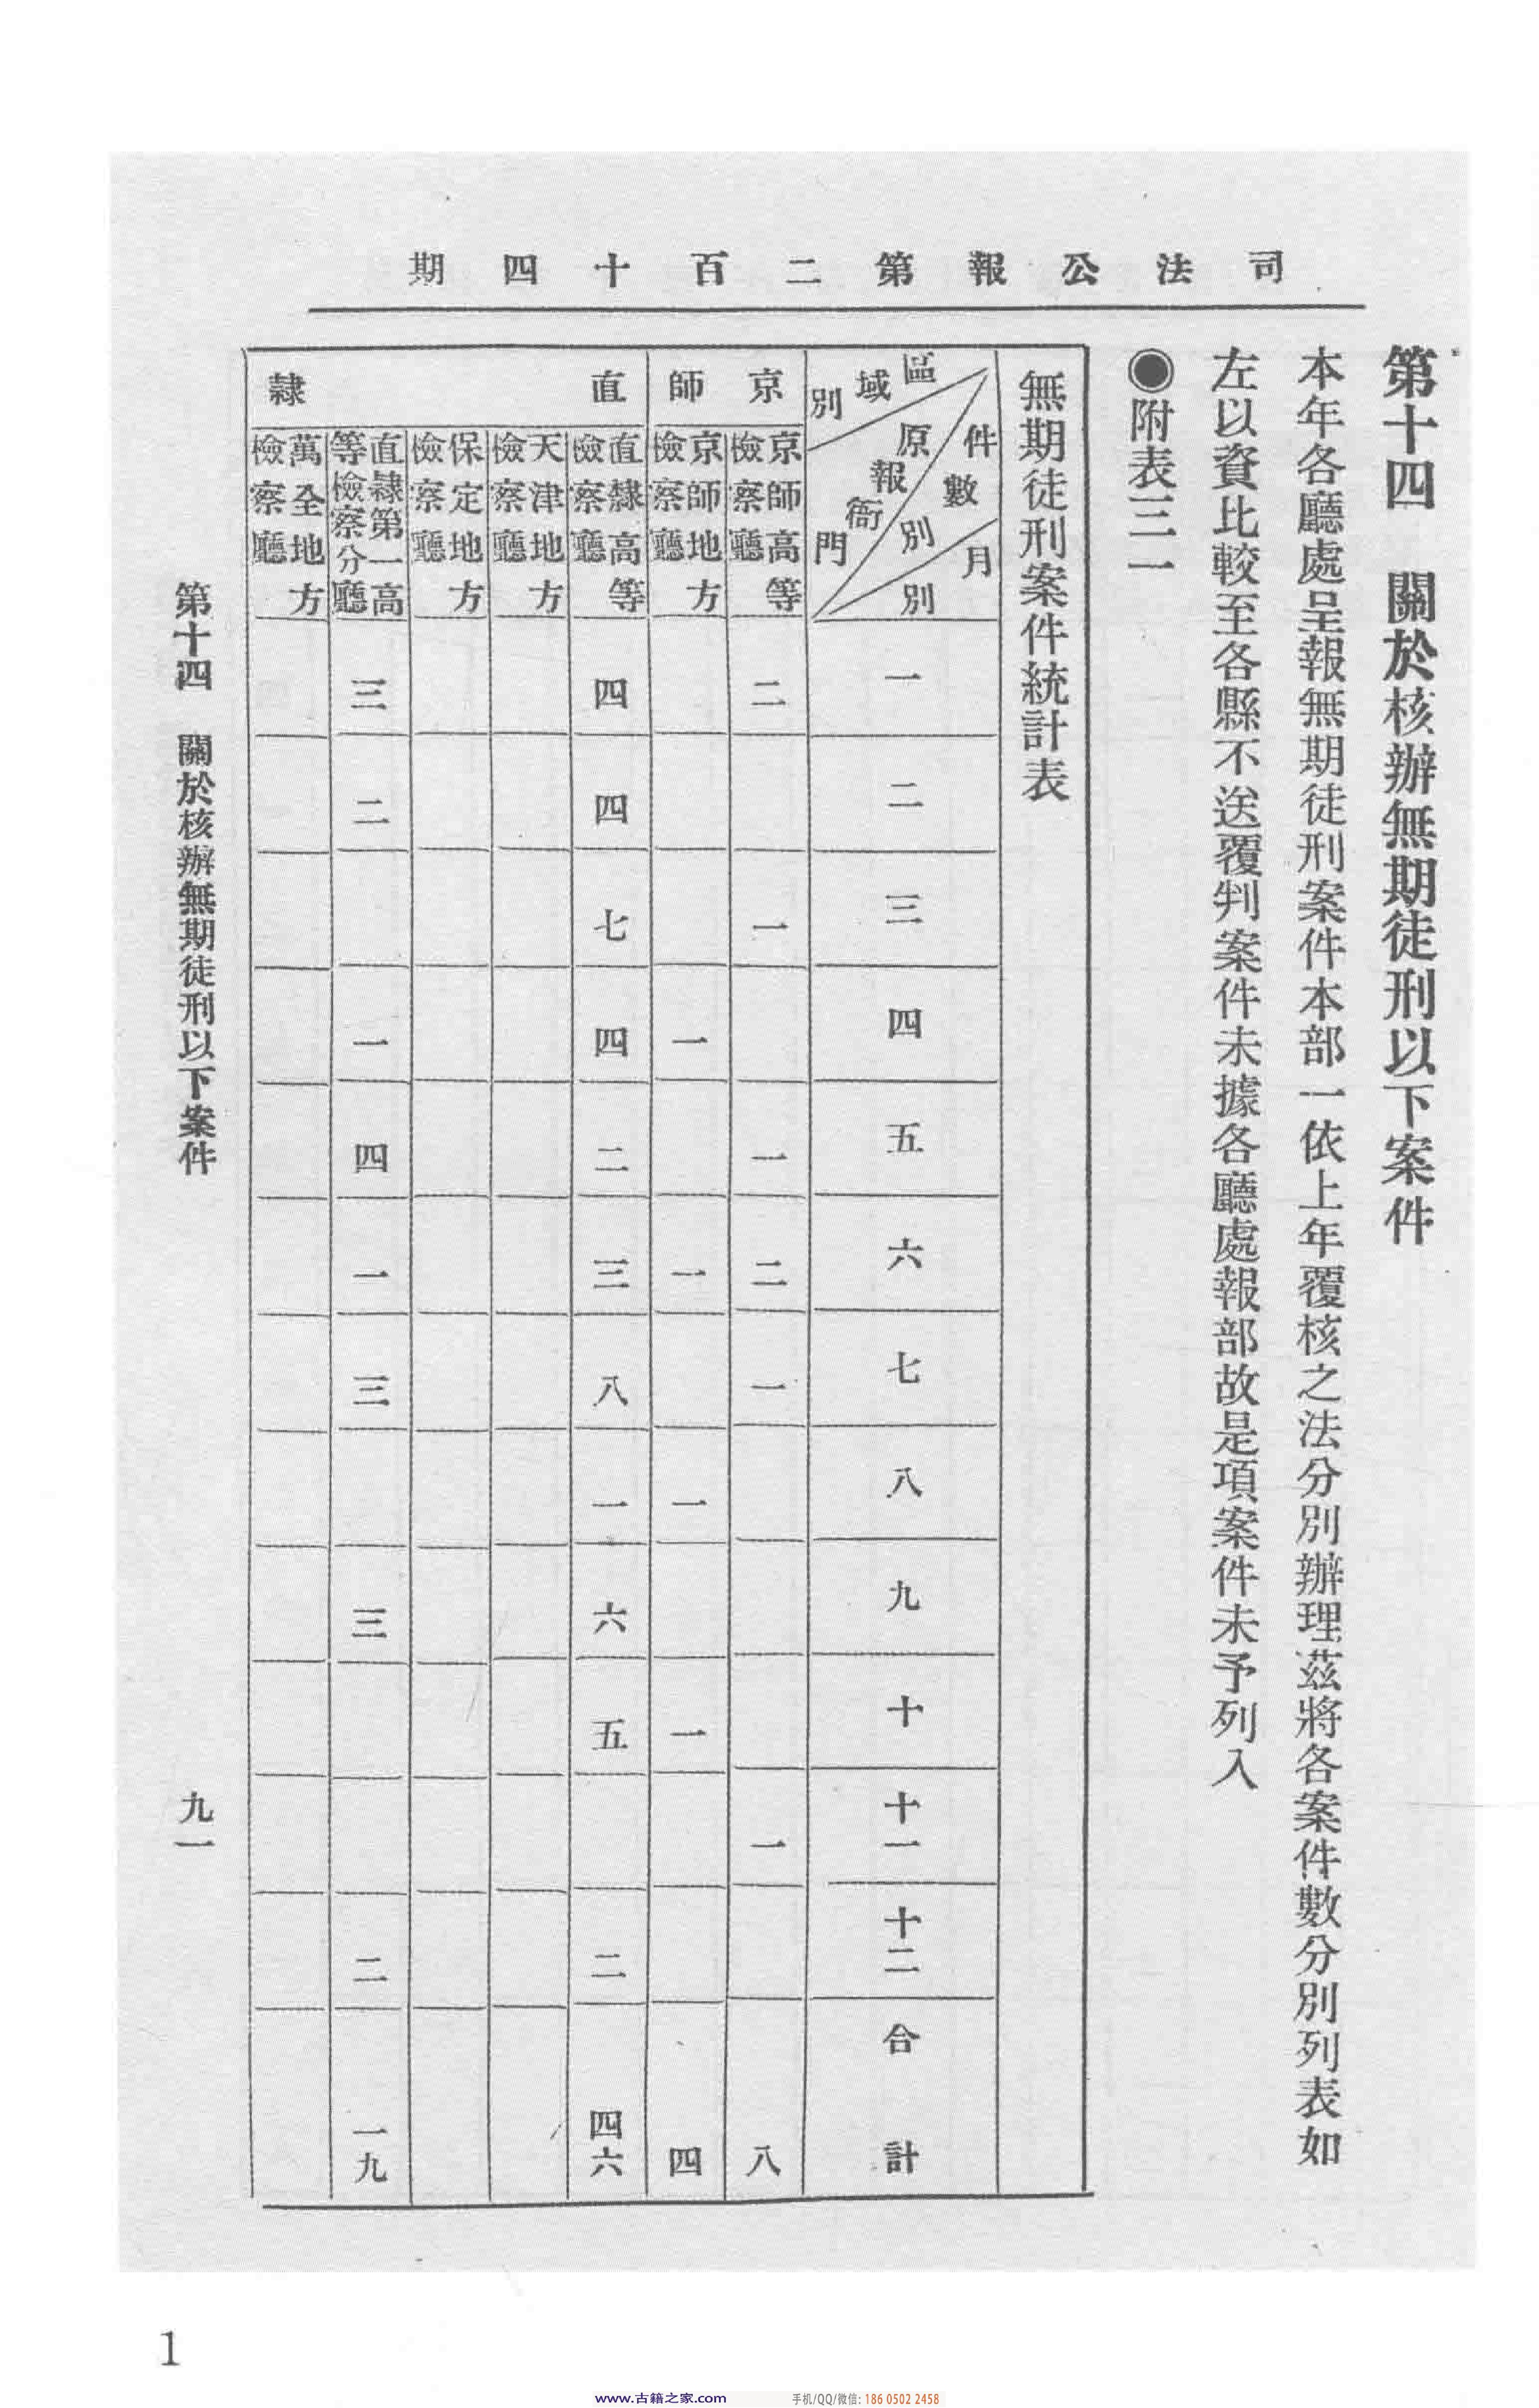 司法公報第二百十四期
第十四　關於核辦無期徒刑以下案件
本年各廳處呈報無期徒刑案件本部一依上年覆核之法分別辦理茲將各案件數分別列表如
左以資比較至各縣不送覆判案件未據各廳處報部故是項案件未予列入
◉附表三一
無期徒刑案件統計表
區域別
原報衙門
件數
別
月別
一
二
三
四
五
六
七
八
九
十
十一
十二
合計
京師
京師高等檢察廳
二
一
一
二
一
一
八
京師地方檢察廳
一
一
一
一
四
直隸
直隸高等檢察廳
四
四
七
四
二
三
八
一
六
五
二
四六
天津地方檢察廳
保定地方檢察廳
直隸第一高等檢察分廳
三
二
一
四
一
三
三
二
一九
萬全地方檢察廳
第十四　關於核辦無期徒刑以下案件
九一
1
www.古籍之家.com
手机/QQ/微信: 186 0502 2458